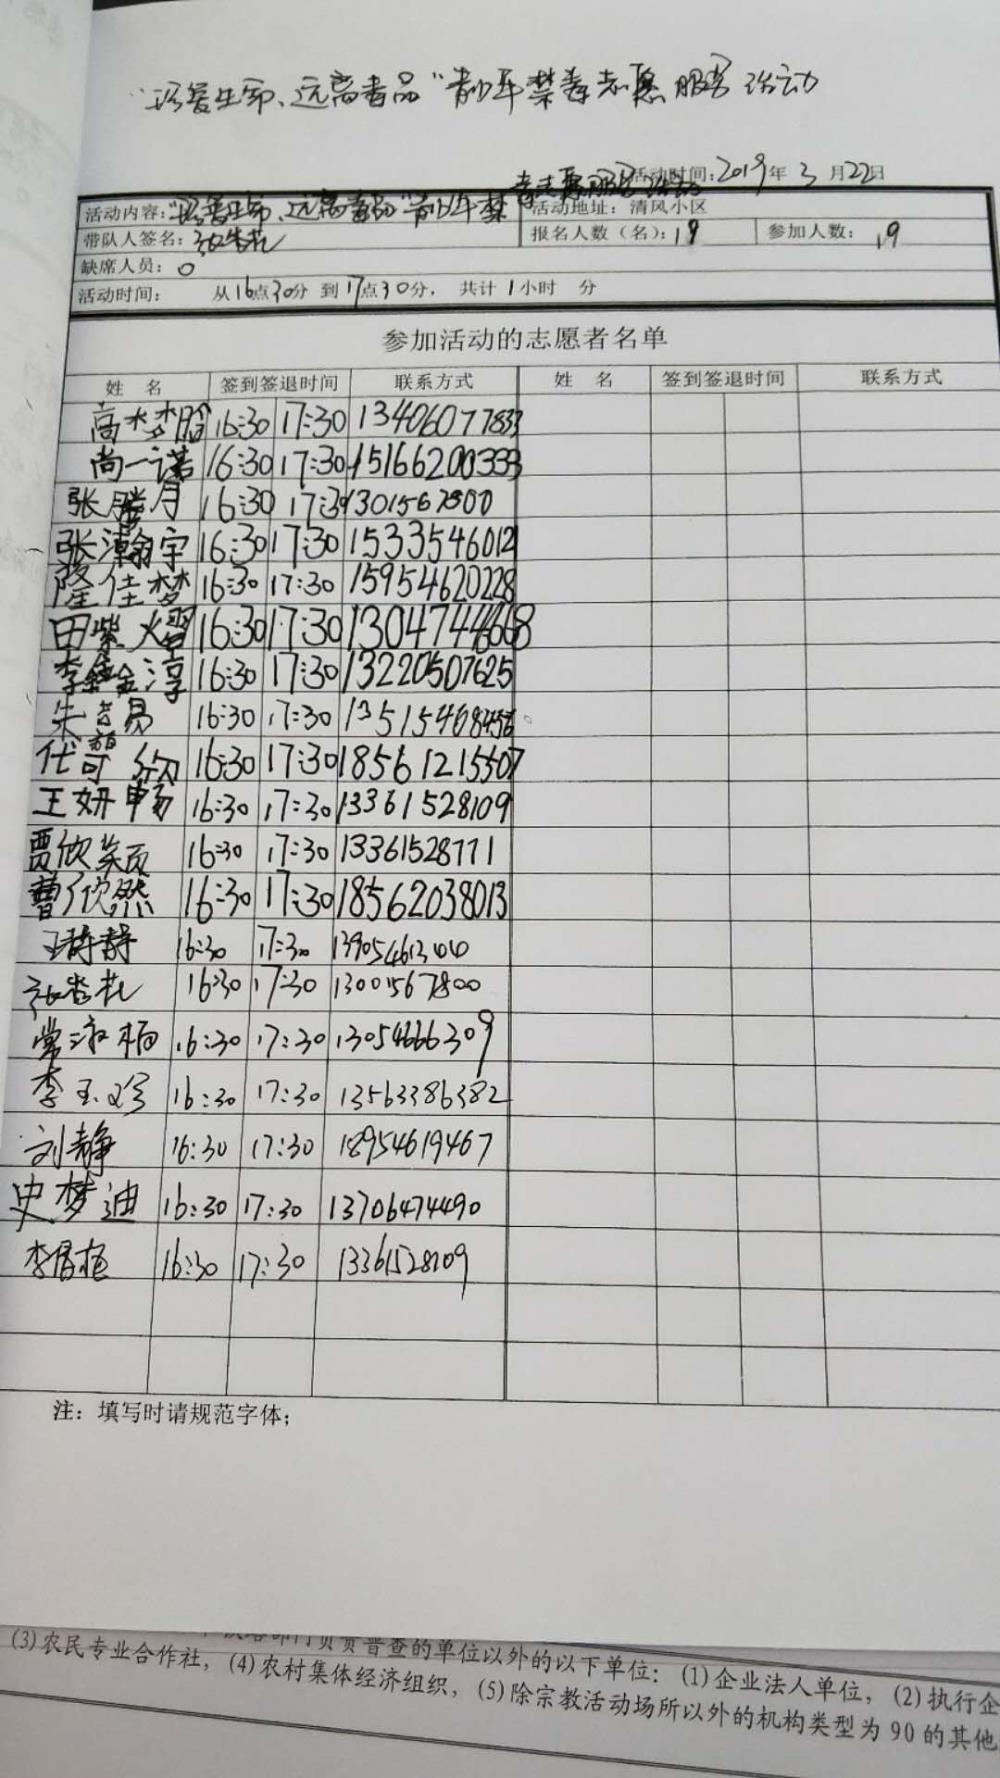 "珍爱生命、远离毒品"青少年禁毒志愿服务活动
活动时间:2019年3月22日
活动内容:"珍爱生命、远离毒品"青少年禁毒志愿服务活动 活动地址:清风小区
带队人签名: 报名人数(名):19 参加人数:19
缺席人员:0
活动时间: 从16点30分 到17点30分, 共计1小时 分
参加活动的志愿者名单
姓 名 签到签退时间 联系方式 姓 名 签到签退时间 联系方式
高梦 16:30 17:30 13406077833
尚一诺 16:30 17:30 15166200333
张腾月 16:30 17:30 1301567800
张瀚宇 16:30 17:30 15335460121
隆佳梦 16:30 17:30 15954620228
田紫熠 16:30 17:30 13047444668
李鑫淳 16:30 17:30 13220507625
朱 易 16:30 17:30 13515468456
代 16:30 17:30 18561215507
王妍畅 16:30 17:30 13361528109
贾欣颖 16:30 17:30 13361528771
曹欣然 16:30 17:30 18562038013
王静静 16:30 17:30
16:30 17:30 13001567800
常淑梅 16:30 17:30 13054666309
李玉珍 16:30 17:30 13563386382
刘静 16:30 17:30 18954619467
史梦迪 16:30 17:30 13706474490
李 16:30 17:30 13361528109
注:填写时请规范字体;
普查的单位以外的以下单位:(1)企业法人单位,(2)执行企
(3)农民专业合作社,(4)农村集体经济组织,(5)除宗教活动场所以外的机构类型为90的其他